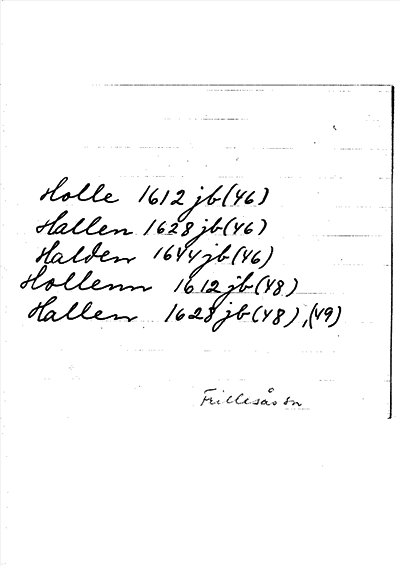 Holle 1612 jb (46)
Hallen 1628 jb (46)
Halden 1644 jb (46)
Hollenn 1612 jb (48)
Hallen 1628 jb (48), (49)
Frillesås sn